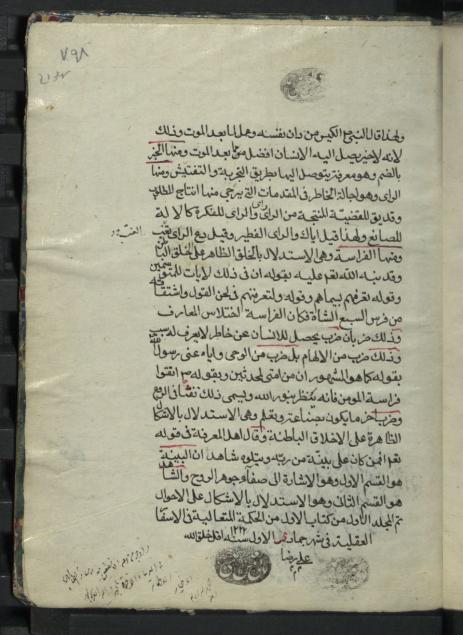 ٧٩٨
ولهذا قال النبی ص الکیس من دان نفسه وعمل لما بعد الموت وذلک
لانه لاخیر یصل الیه الانسان افضل مما بعد الموت ومنها الخبر
بالضم وهو معرفة یتوصل الیها بطریق التجربة والتفتیش ومنها
الرای وهو اجالة الخاطر فی المقدمات التی یرجی منها انتاج المطلوب
وقد یق للقضیة المنتجة من الرای رای والرای للفکرة کالالة
للصانع ولهذا قیل ایاک والرای الفطیر وقیل دع الرای یغب
ومنها الفراسة وهی الاستدلال بالخلق الظاهر علی الخلق الباطن
وقد نبه الله تعم علیه بقوله ان فی ذلک لایات للمتوسمین
وقوله تعرفهم بسیماهم وقوله ولتعرفنهم فی لحن القول واشتقاقه
من فرس السبع الشاة فکان الفراسة اختلاس المعارف
وذلک ضربان ضرب یحصل للانسان عن خاطر لایعرف له سبب
وذلک ضرب من الالهام بل ضرب من الوحی وایاه عنی رسول الله
بقوله کما هو المشهور ان من امتی لمحدثین وبقوله ص اتقوا
فراسة المومن فانه ینظر بنور الله ویسمی ذلک نفثا فی الروع
وضرب اخر ما یکون بصناعة وتعلم وهی الاستدلال بالاشکال
الظاهرة علی الاخلاق الباطنة وقال اهل المعرفة فی قوله
تعم افمن کان علی بینة من ربه ویتلوه شاهد ان البینة
هو القسم الاول وهو الاشارة الی صفاء جوهر الروح والشاهد
هو القسم الثانی وهو الاستدلال بالاشکال علی الاحوال
تم المجلد الاول من کتاب الاول من الحکمة المتعالیة فی الاسفار
العقلیة فی شهر جمادی الاول سنه ١٢١٢ اقل خلق الله
علی رضا